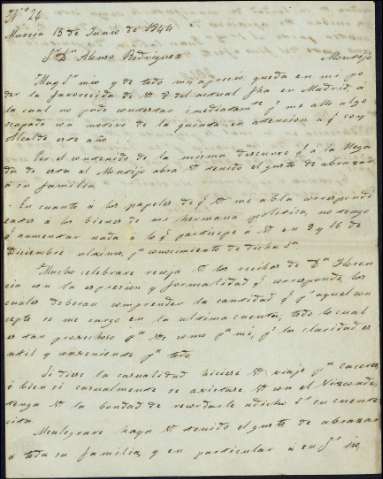 Nº 24
Murcia 13 de Junio de 1844
Sr. Dn. Alonso Rodriguez Montijo
Muy Sr. mio y de todo mi aprecio: queda en mi po
der la favorecida de V. del actual fha en Madrid, a
la cual no pude contestar inmediatamente pr. me allo algo
ocupado con motivo de la quinta en atencion a q. soy
Alcalde este año
Por el contenido de la misma descurro q. a la llega
da de esta al Montijo abra V. tenido el gusto de abrazar
a su familia
En cuanto a los papeles de q. V. me abla correspondi
entes a los bienes de mi hermana politica, no tengo
q. aumentar nada a lo q. participe a V. en 9 y 16 de
Diciembre ultimo, pa. conocimiento de dicha Sa.
Mucho celebrare venga V. los recibos de Da. Floren
cia con la espresion y formalidad q. corresponde, los
cuales deberan comprender la cantidad q. pr. aquel con
cepto se me cargo en la ultima cuenta, todo lo cual
es tan provechoso pa. V. como pa. mi, pr. la claridad es
util y conveniente pa. todo
Si diese la casualidad hiciese V. viaje pa. Caceres
o bien si casualmente se avistase V. con el Vizconde
tenga V. la bondad de recordarle a dicho Sr. su cuente
cita
Me alegrare haya V. tenido el gusto de abrazar
a toda su familia, y en particular a su